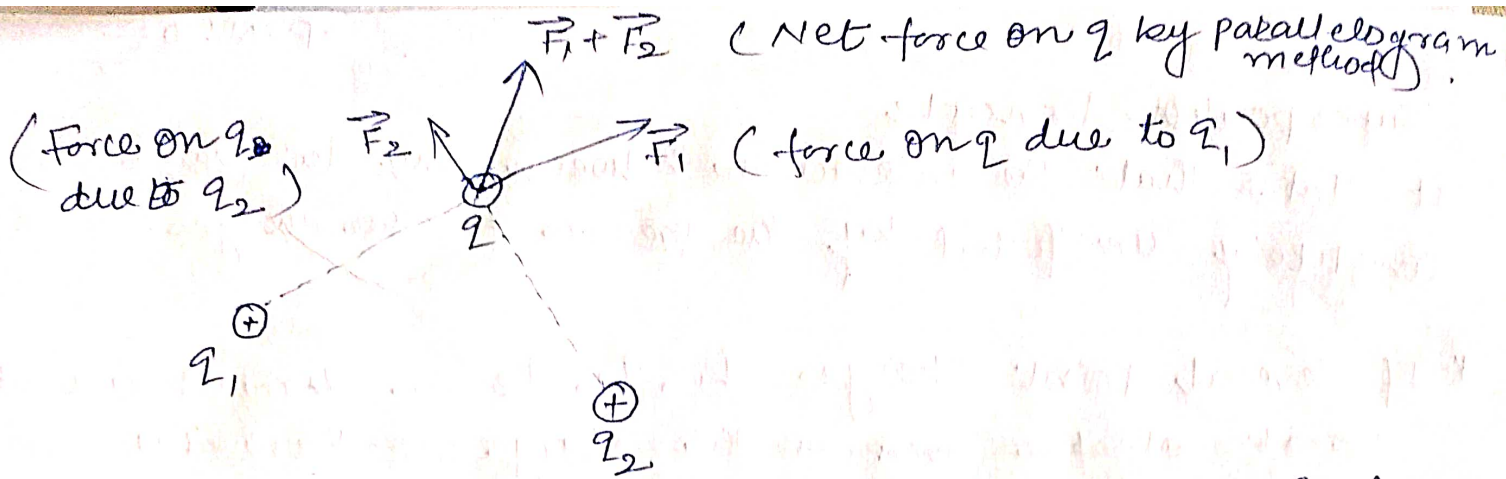 F₁ + F₂ (Net force on q by parallelogram
method).
(Force on q
due to q₂)
F₂
F₁ (force on q due to q₁)
q
+
q₁
+
q₂